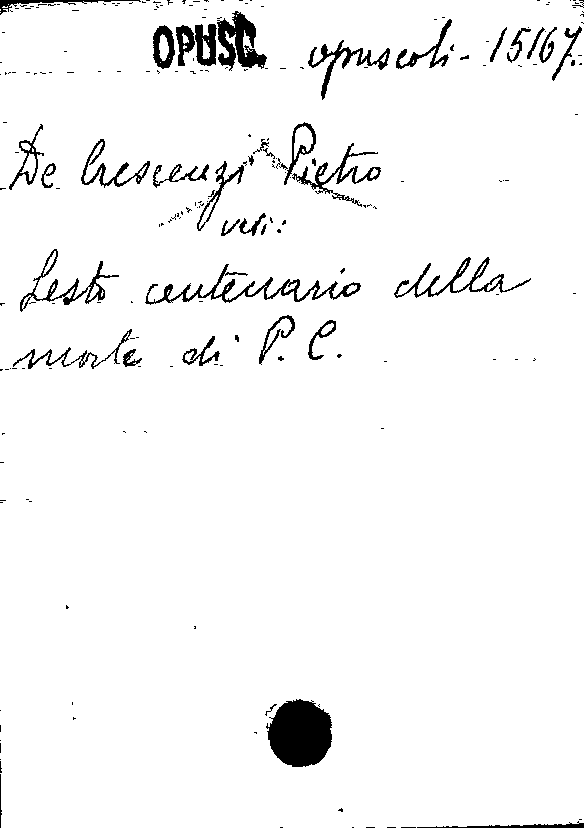 OPUSC. opuscoli - 15167.
De Crescenzi Pietro
vedi:
Sesto centenario della
morte di P. C.